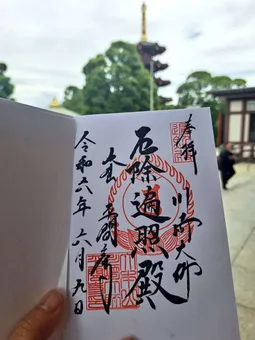 奉拝
川崎大師
厄除遍照殿
大本山 平間寺
令和六年 六月九日